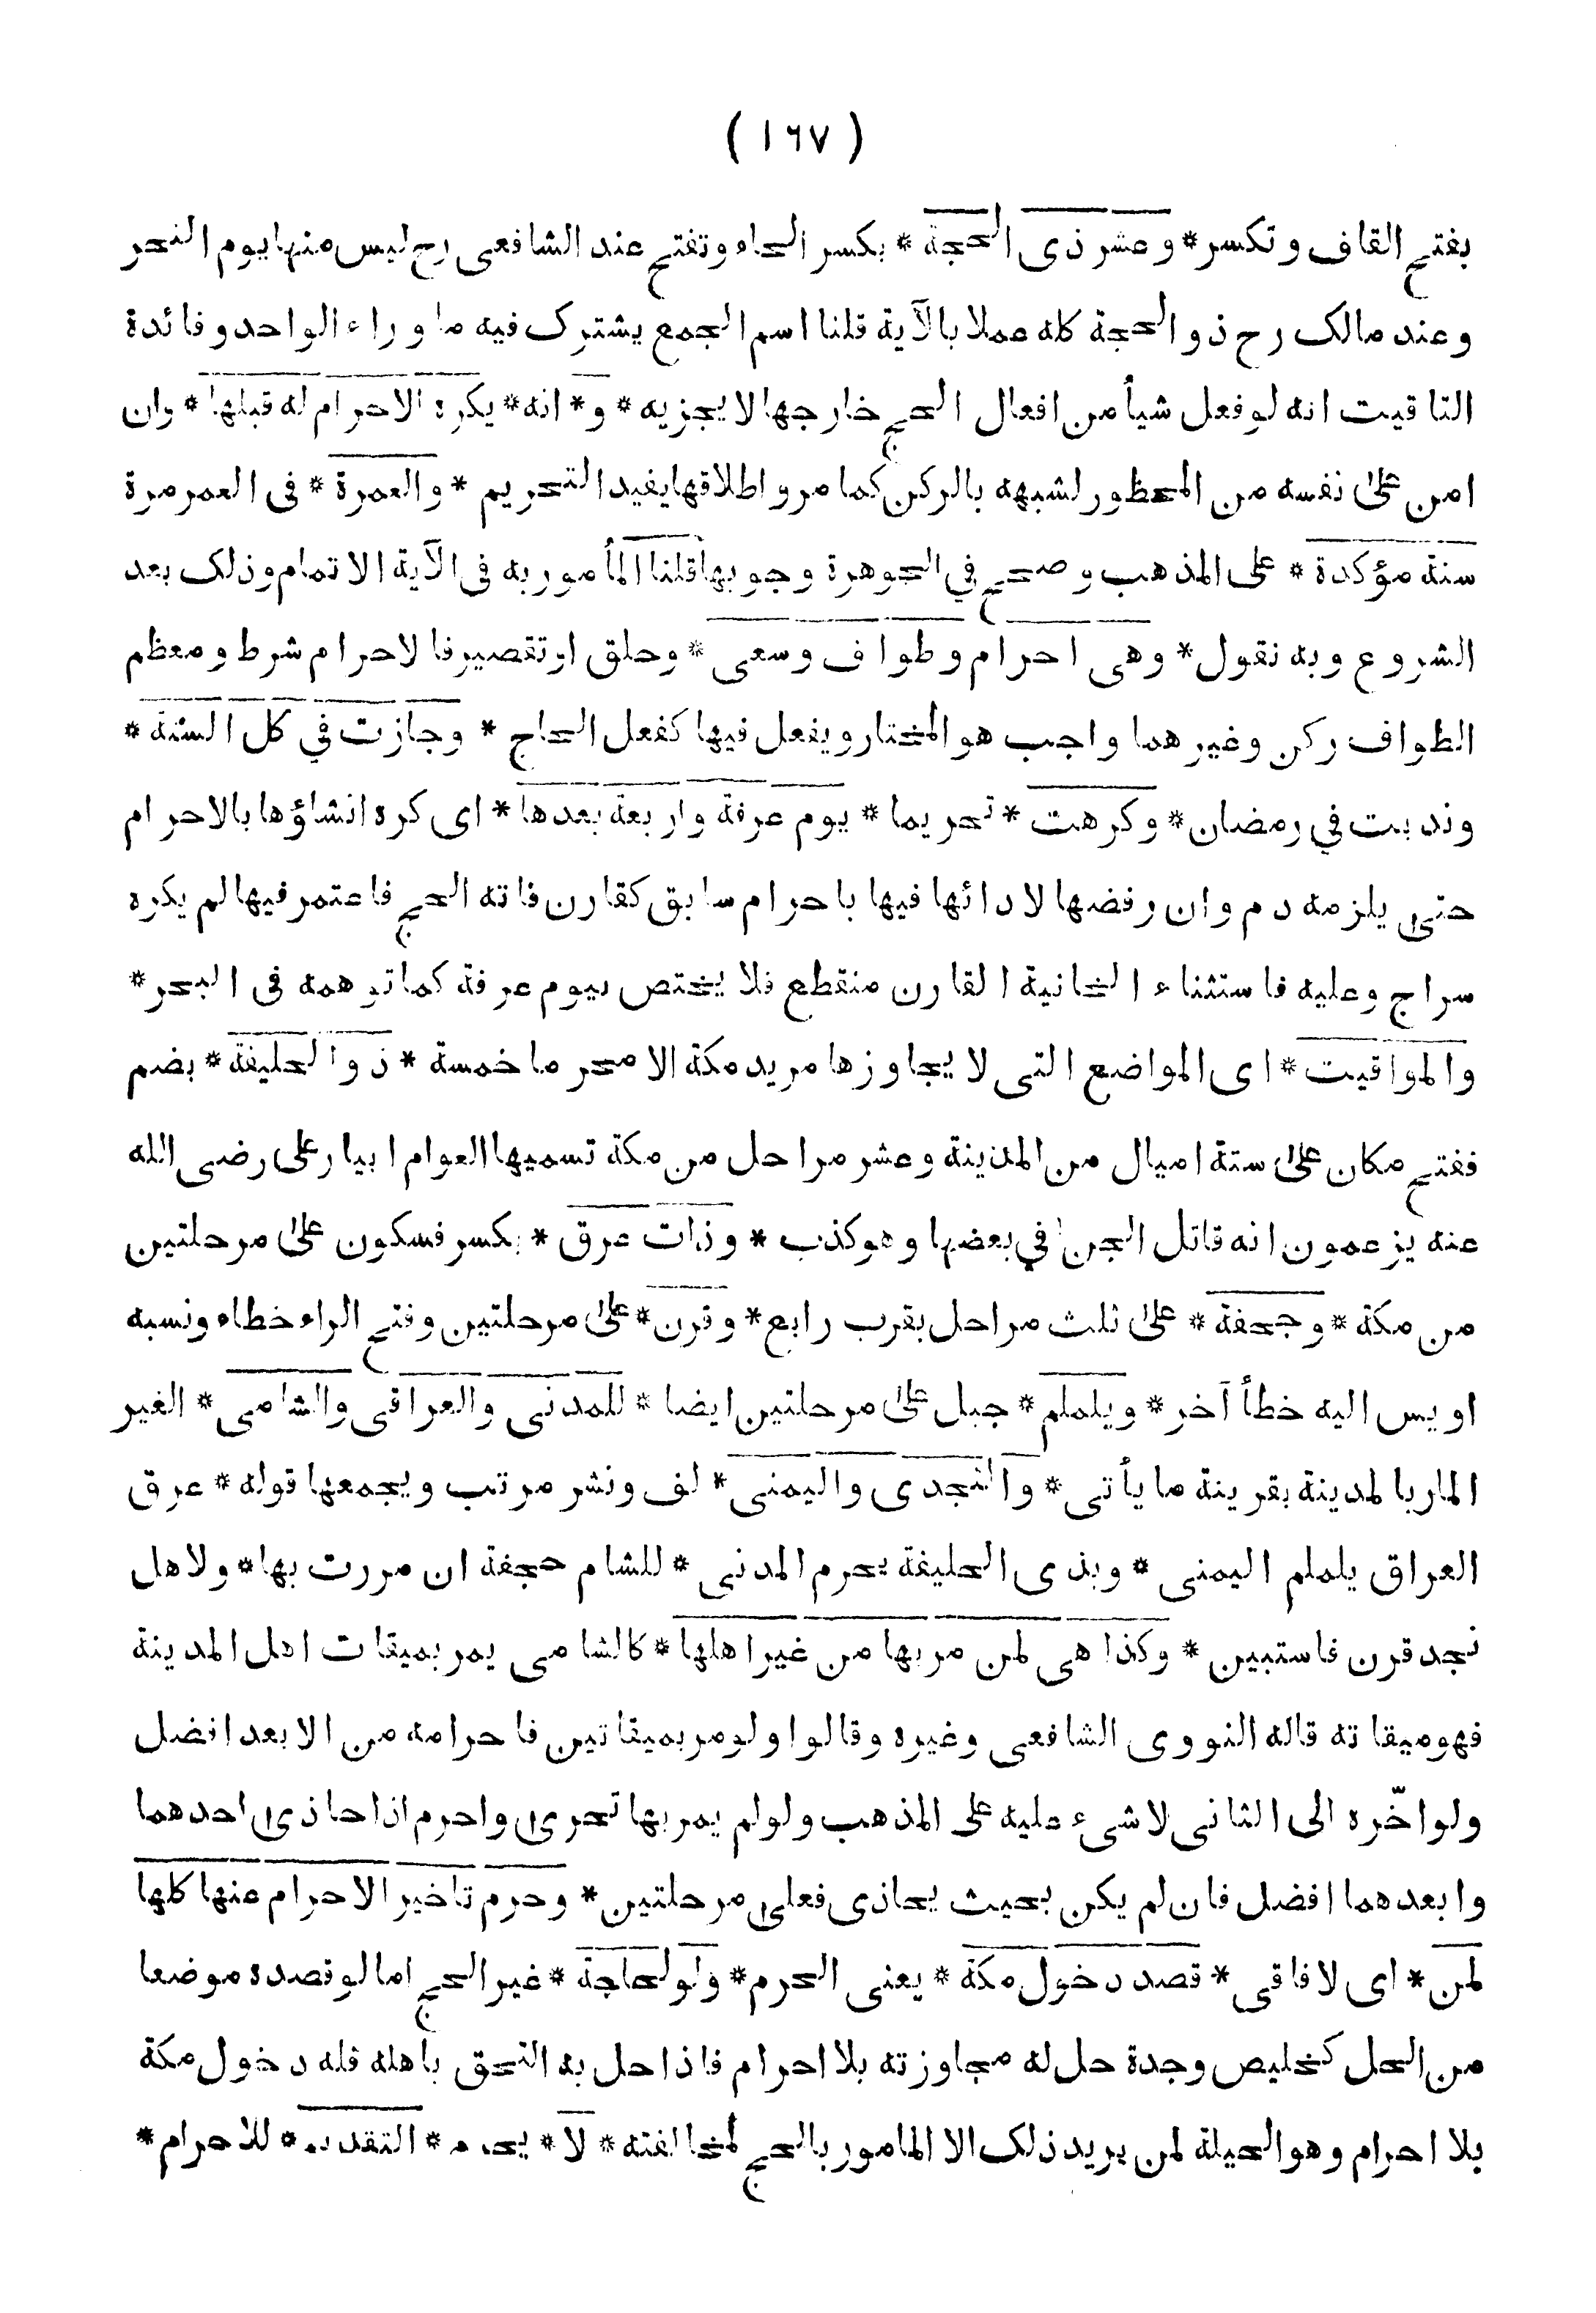 ( ١٦٧ )
بفتح القاف وتكسر * وعشر ذى الحجة * بكسر الحاء وتفتح عند الشافعى رح ليس منها يوم النحر
وعند مالک رح ذو الحجة كله عملا بالآية قلنا اسم الجمع يشترک فيه ما وراء الواحد وفائدة
التاقيت انه لو فعل شيأ من افعال الحج خارجها لا يجزيه * و * انه * يكره الاحرام له قبلها * وان
امن على نفسه من المحظور لشبهه بالركن كما مر واطلاقها يفيد التحريم * والعمرة * فى العمر مرة
سنة مؤكدة * على المذهب وصحح في الجوهرة وجوبها قلنا المأمور به فى الآية الاتمام وذلک بعد
الشروع وبه نقول * وهى احرام وطواف وسعى * وحلق او تقصير فالاحرام شرط ومعظم
الطواف ركن وغيرهما واجب هو المختار ويفعل فيها كفعل الحاج * وجازت في كل السنة *
وندبت في رمضان * وكرهت * تحريما * يوم عرفة واربعة بعدها * اى كره انشاؤها بالاحرام
حتى يلزمه دم وان رفضها لا دائها فيها باحرام سابق كقارن فاته الحج فاعتمر فيها لم يكره
سراج وعليه فاستثناء الخانية القارن منقطع فلا يختص بيوم عرفة كما توهمه فى البحر *
والمواقيت * اى المواضع التى لا يجاوزها مريد مكة الا محرما خمسة * ذو الحليفة * بضم
ففتح مكان على ستة اميال من المدينة وعشر مراحل من مكة تسميها العوام ابيار على رضى الله
عنه يزعمون انه قاتل الجن في بعضها وهو كذب * وذات عرق * بكسر فسكون على مرحلتين
من مكة * وجحفة * على ثلث مراحل بقرب رابع * وقرن * على مرحلتين وفتح الراء خطاء ونسبه
اويس اليه خطأ آخر * ويلملم * جبل على مرحلتين ايضا * للمدنى والعراقى والشامى * الغير
المار بالمدينة بقرينة ما يأتى * والنجدى واليمنى * لف ونشر مرتب ويجمعها قوله * عرق
العراق يلملم اليمنى * وبذى الحليفة يحرم المدنى * للشام جحفة ان مررت بها * ولاهل
نجد قرن فاستبين * وكذا هى لمن مر بها من غير اهلها * كالشامى يمر بميقات اهل المدينة
فهو ميقاته قاله النووى الشافعى وغيره وقالوا ولو مر بميقاتين فاحرامه من الابعد افضل
ولو اخّره الى الثانى لا شىء عليه على المذهب ولو لم يمر بها تحرى واحرم اذا حاذى احدهما
وابعدهما افضل فان لم يكن بحيث يحاذى فعلى مرحلتين * وحرم تاخير الاحرام عنها كلها
لمن * اى لافاقى * قصد دخول مكة * يعنى الحرم * ولو لحاجة * غير الحج اما لو قصده موضعا
من الحل كخليص وجدة حل له مجاوزته بلا احرام فاذا حل به التحق باهله فله دخول مكة
بلا احرام وهو الحيلة لمن يريد ذلک الا المامور بالحج لمخالفته * لا * يحرم * التقديم * للاحرام *